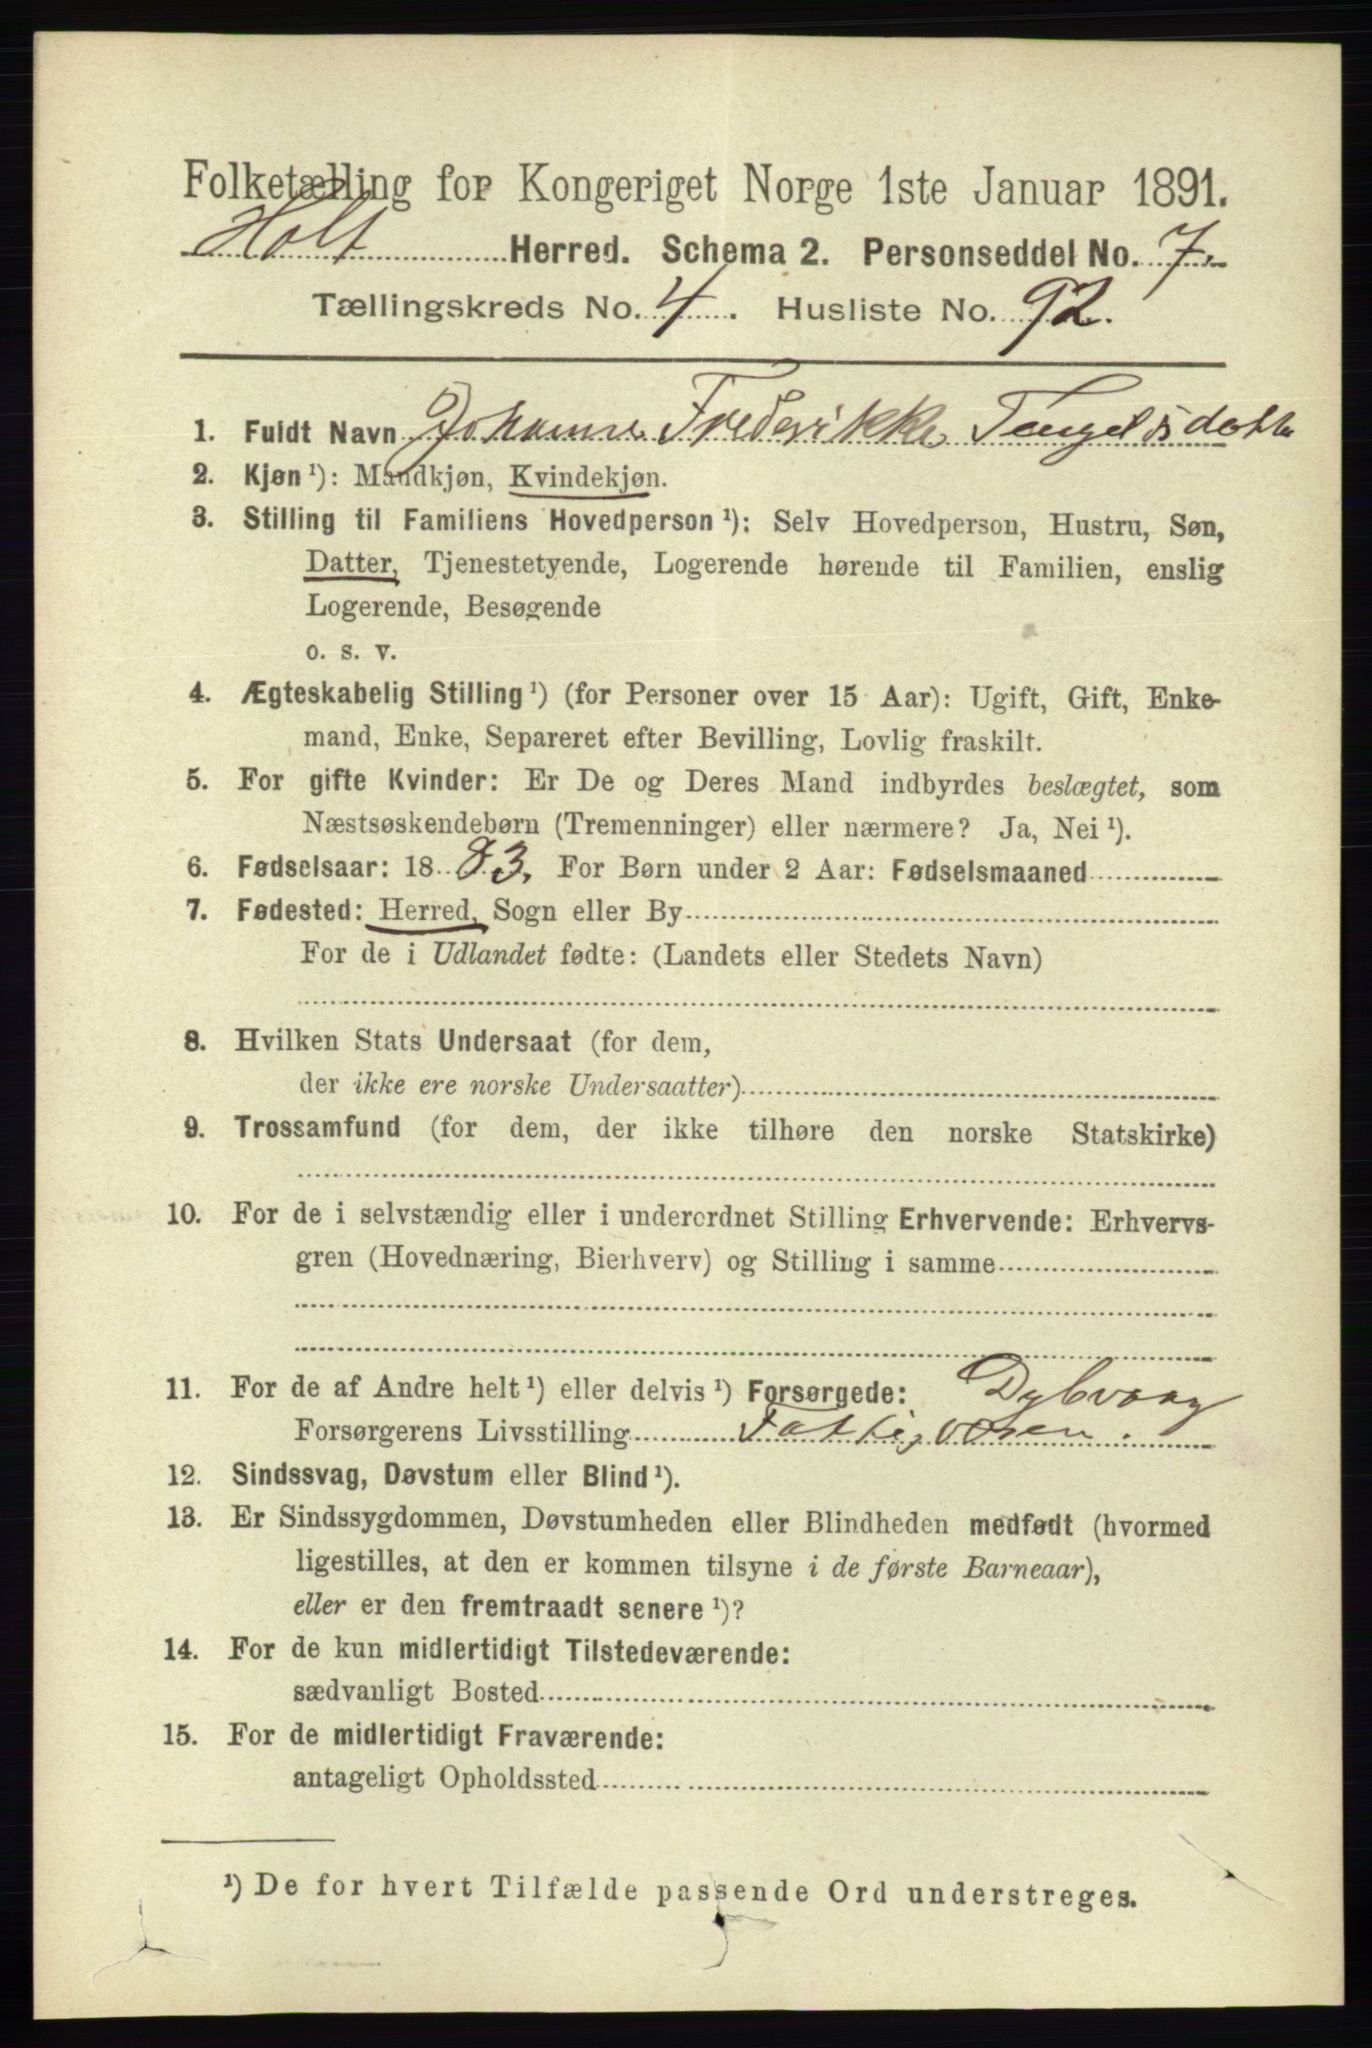 Folketælling for Kongeriget Norge 1ste Januar 1891.
Holt Herred. Schema 2. Personseddel No. 7.
Tællingskreds No. 4. Husliste No. 92.
1. Fuldt Navn Johanne Frederikke Tengelsdatter
2. Kjøn ¹): Mandkjøn, Kvindekjøn.
3. Stilling til Familiens Hovedperson ¹): Selv Hovedperson, Hustru, Søn,
Datter, Tjenestetyende, Logerende hørende til Familien, enslig
Logerende, Besøgende
o. s. v.
4. Ægteskabelig Stilling ¹) (for Personer over 15 Aar): Ugift, Gift, Enke-
mand, Enke, Separeret efter Bevilling, Lovlig fraskilt.
5. For gifte Kvinder: Er De og Deres Mand indbyrdes beslægtet, som
Næstsøskendebørn (Tremenninger) eller nærmere? Ja, Nei ¹).
6. Fødselsaar: 18 83. For Børn under 2 Aar: Fødselsmaaned
7. Fødested: Herred, Sogn eller By
For de i Udlandet fødte: (Landets eller Stedets Navn)
8. Hvilken Stats Undersaat (for dem,
der ikke ere norske Undersaatter)
9. Trossamfund (for dem, der ikke tilhøre den norske Statskirke)
10. For de i selvstændig eller i underordnet Stilling Erhvervende: Erhvervs-
gren (Hovednæring, Bierhverv) og Stilling i samme
11. For de af Andre helt ¹) eller delvis ¹) Forsørgede: Dybvaag
Forsørgerens Livsstilling Fattigvæsen.
12. Sindssvag, Døvstum eller Blind ¹).
13. Er Sindssygdommen, Døvstumheden eller Blindheden medfødt (hvormed
ligestilles, at den er kommen tilsyne i de første Barneaar),
eller er den fremtraadt senere ¹)?
14. For de kun midlertidigt Tilstedeværende:
sædvanligt Bosted
15. For de midlertidigt Fraværende:
antageligt Opholdssted
¹) De for hvert Tilfælde passende Ord understreges.